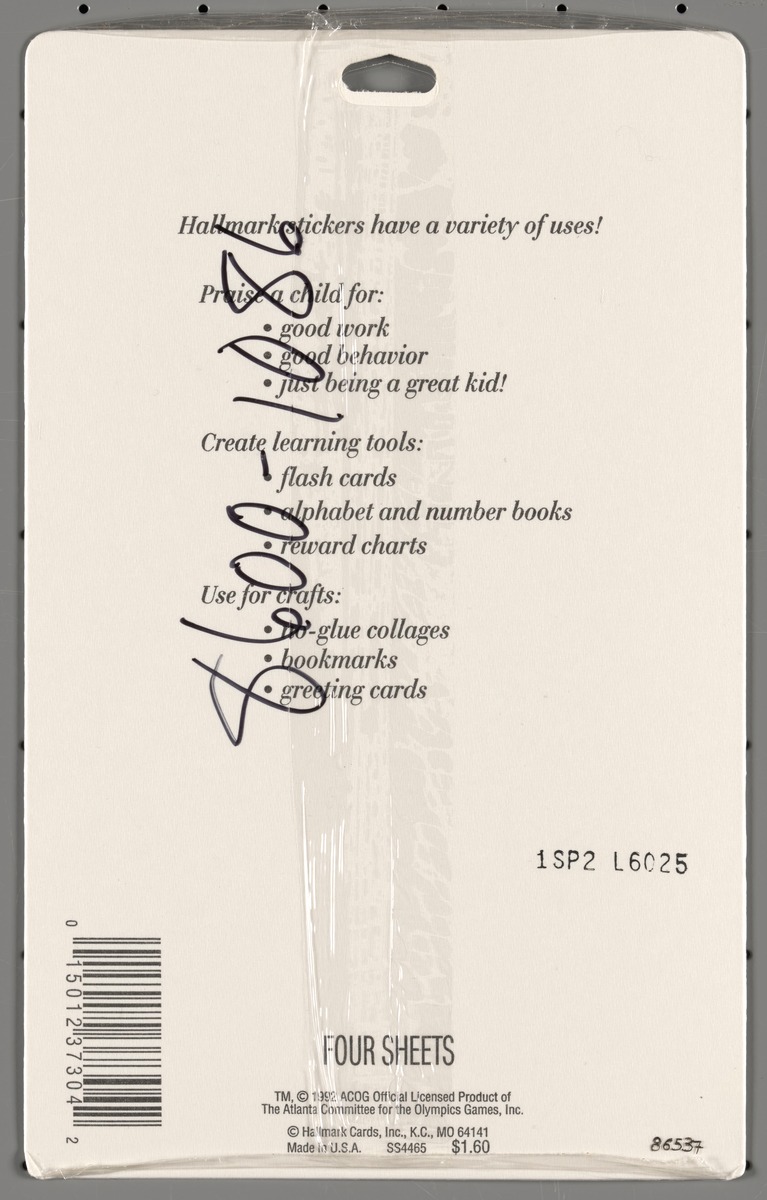 Hallmark stickers have a variety of uses!
Praise a child for:
• good work
• good behavior
• just being a great kid!
Create learning tools:
• flash cards
• alphabet and number books
• reward charts
Use for crafts:
• no-glue collages
• bookmarks
• greeting cards
8600-1086
1SP2 L6025
0 15012 37304 2
FOUR SHEETS
TM, © 1992 ACOG Official Licensed Product of
The Atlanta Committee for the Olympics Games, Inc.
© Hallmark Cards, Inc., K.C., MO 64141
Made in U.S.A. SS4465 $1.60
86537